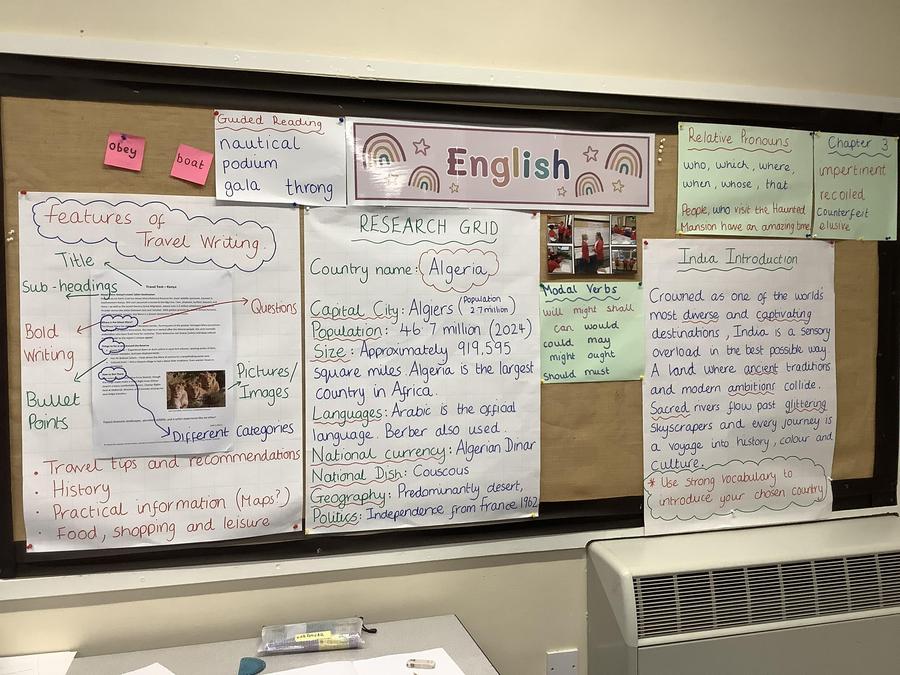 obey
boat
Guided Reading
nautical
podium
gala throng
English
Relative Pronouns
who, which, where,
when, whose, that
People, who visit the Haunted
Mansion have an amazing time.
Chapter 3
impertinent
recoiled
counterfeit
elusive
features of
Travel Writing.
Title
Sub-headings
Bold
Writing
Bullet
Points
Questions
Pictures/
Images
Different Categories
Travel Text – Kenya
• Travel tips and recommendations
• History
• Practical information (Maps?)
• Food, shopping and leisure
RESEARCH GRID
Country name: Algeria
Capital City: Algiers (Population 2.7 million)
Population: 46.7 million (2024)
Size: Approximately 919,595
square miles. Algeria is the largest
country in Africa.
Languages: Arabic is the official
language. Berber also used.
National currency: Algerian Dinar
National Dish: Couscous
Geography: Predominantly desert,
Politics: Independence from France 1962
Modal Verbs
will might shall
can would
could may
might ought
should must
India Introduction
Crowned as one of the world's
most diverse and captivating
destinations, India is a sensory
overload in the best possible way.
A land where ancient traditions
and modern ambitions collide.
Sacred rivers flow past glittering
skyscrapers and every journey is
a voyage into history, colour and
culture.
* Use strong vocabulary to
introduce your chosen country